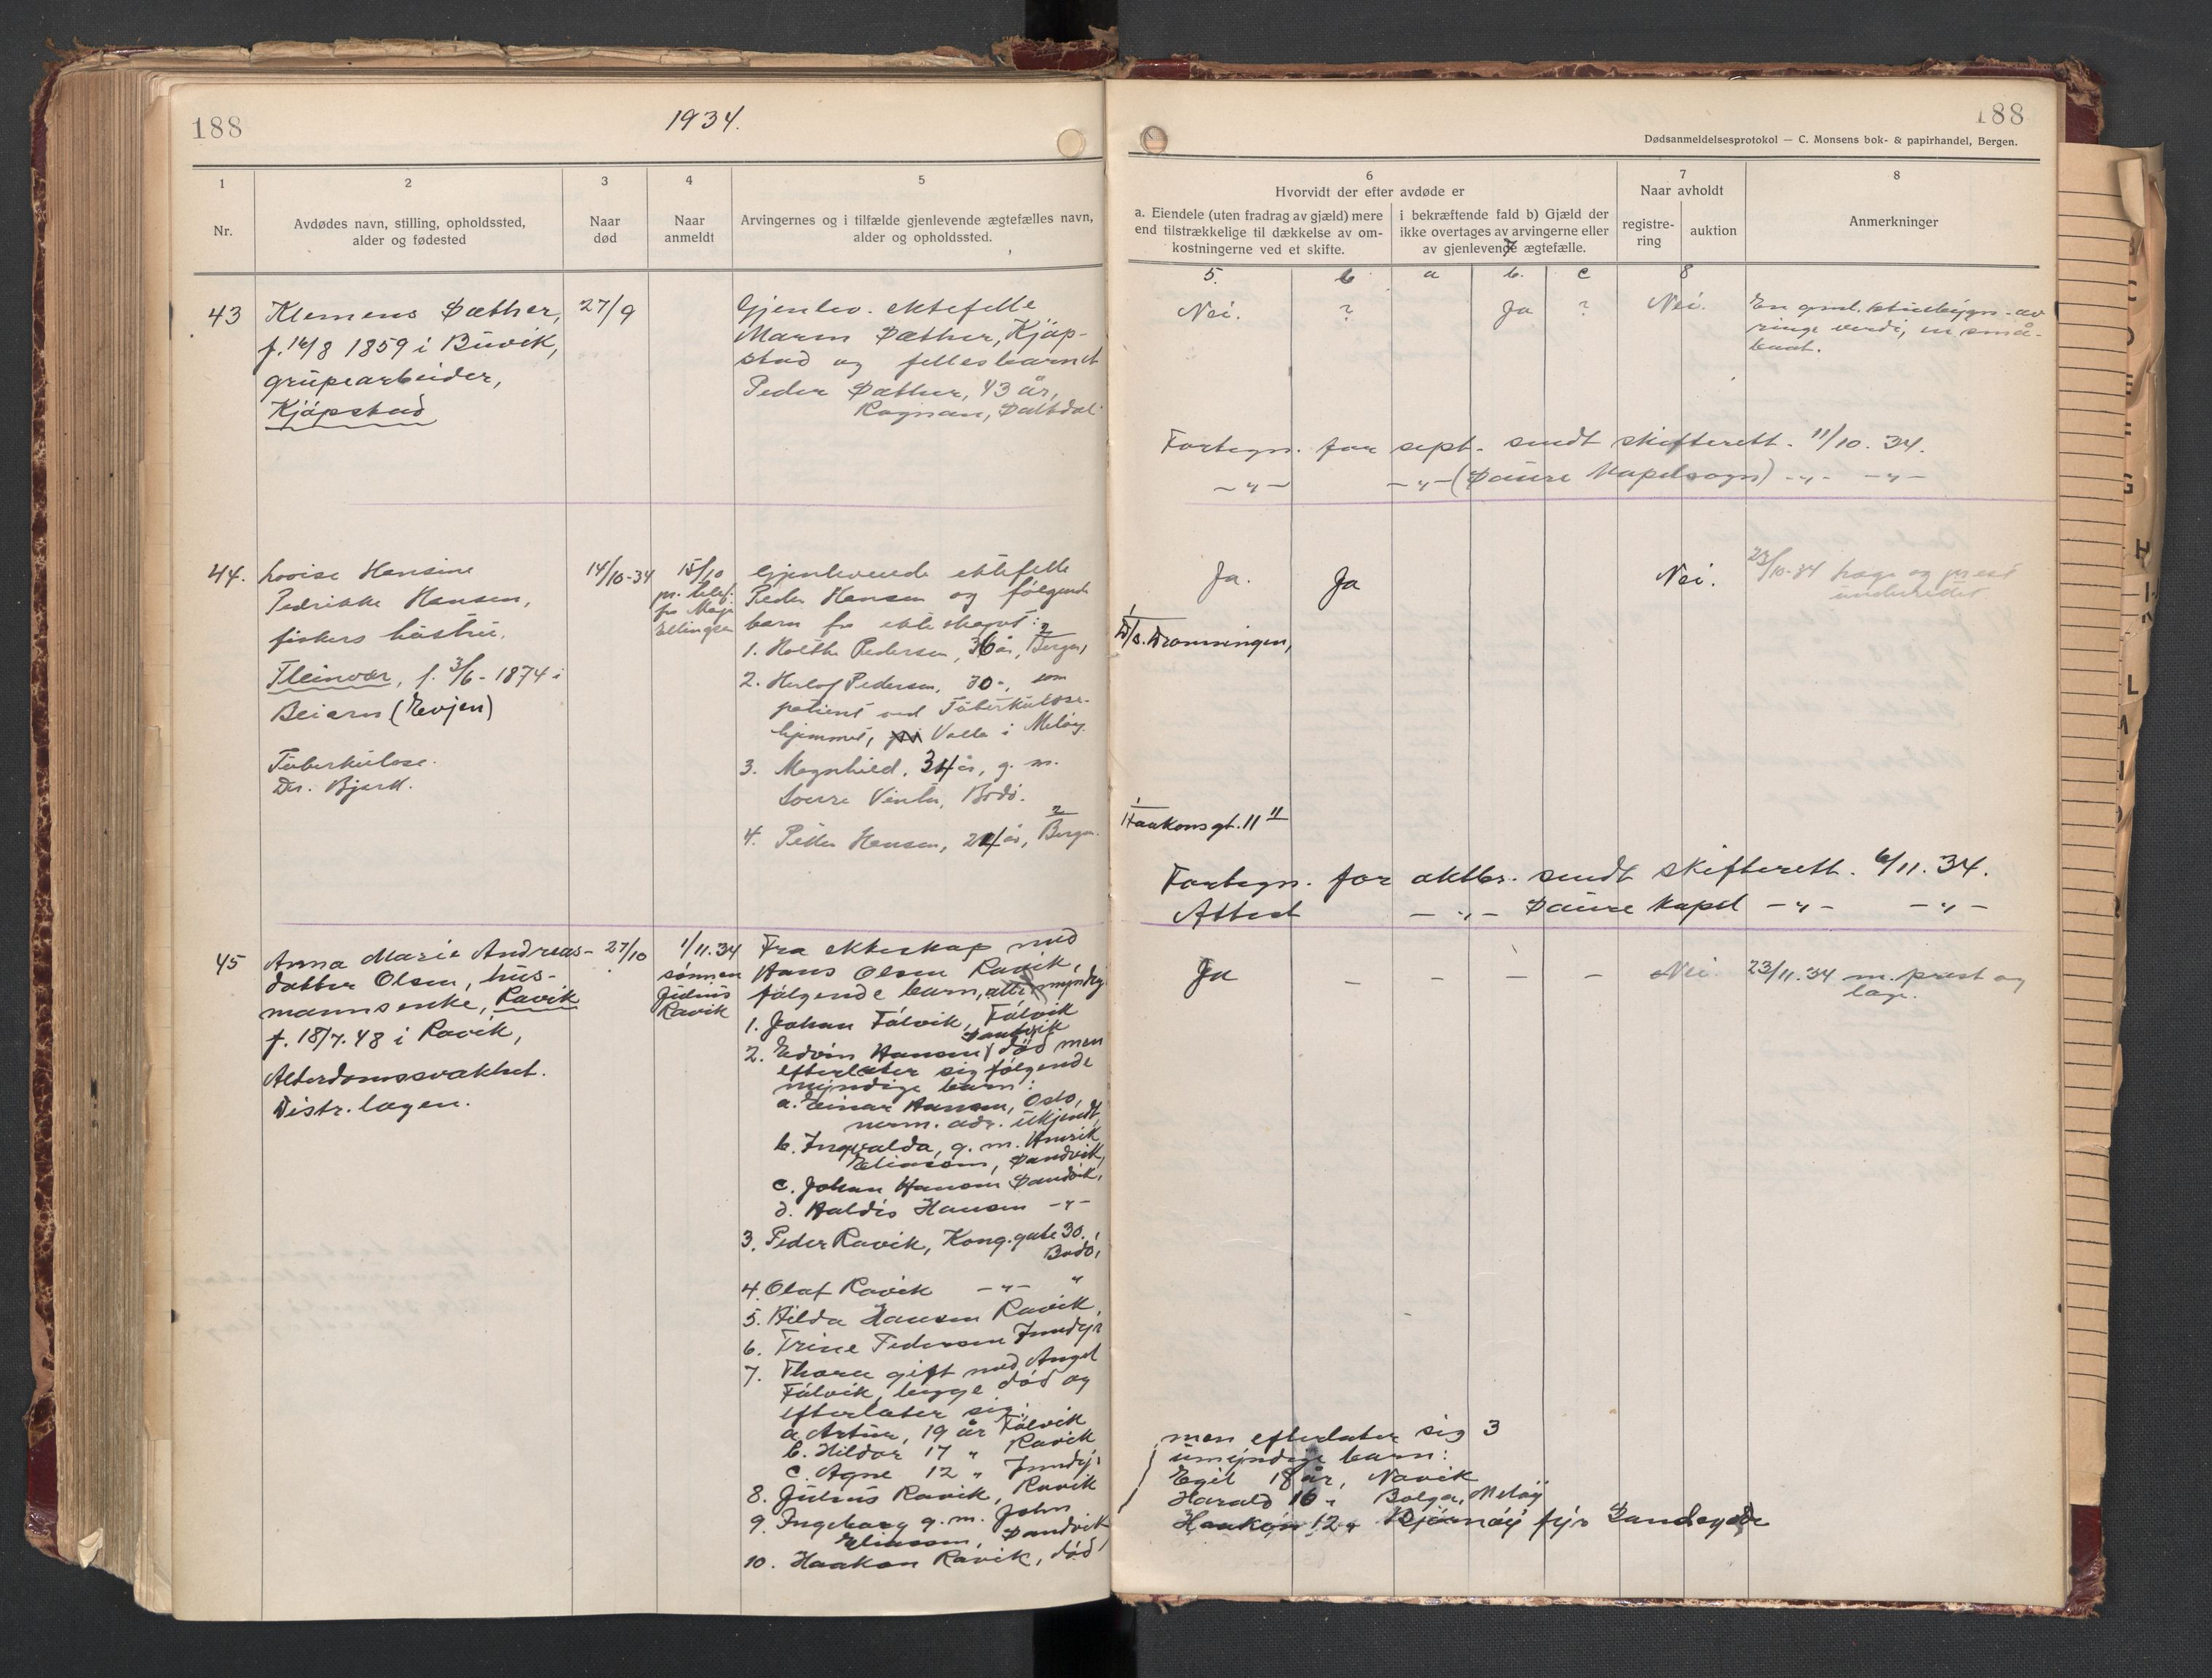 188
1934.
188
Dødsanmeldelsesprotokol — C. Monsens bok- & papirhandel, Bergen.
1
2
3
4
5
6
7
8
Nr.
Avdødes navn, stilling, opholdssted,
alder og fødested
Naar
død
Naar
anmeldt
Arvingernes og i tilfælde gjenlevende ægtefælles navn,
alder og opholdssted.
Hvorvidt der efter avdøde er
a. Eiendele (uten fradrag av gjæld) mere
end tilstrækkelige til dækkelse av om-
kostningerne ved et skifte.
i bekræftende fald b) Gjæld der
ikke overtages av arvingerne eller
av gjenlevende ægtefælle.
Naar avholdt
registre-
ring
auktion
Anmerkninger
5. 6 a 7 b. c 8
43
Klemens Sæther,
f. 16/8 1859 i Buvik,
grubearbeider,
Kjøpstad
27/9
Gjenlev. ektefelle
Maren Sæther, Kjøp-
stad og fellesbarnet
Peder Sæther, 43 år,
Rognan, Saltdal
Nei. ? Ja ? Nei.
En gml. stuebygn. av
ringe verdi, en små-
baat.
Fortegn. for sept. sendt skifterett. 11/10. 34.
-"- -"- (Saura Kapelsogn) -"- -"-
44.
Lovise Hansine
Pedrikke Hansen,
fiskers hustru,
Fleinvær, f. 3/6-1874 i
Beiarn (Evjen)
Tuberkulose.
Dr. Bjark.
14/10-34
15/10
pr. telef.
fr.
Ellingsen
Gjenlevende ektefelle
Peder Hansen og følgende
barn fra ekteskapet:
1. Pedersen, 36 år, Bergen,
2. Herlof Pedersen, 30-, som
patient ved Tuberkulose-
hjemmet, Valla i Meløy
3. Magnhild, 34 år, g. m.
Sverre Vinter, Bodø.
4. Petter Hansen, 24 år, Bergen.
Ja. Ja Nei.
23/10-34 læge og prest
underrettet
D/s. Dronningen,
Haakonsgt. 11 II
Fortegn. for oktbr. sendt skifterett. 6/11. 34.
Attest -"- Saura Kapel -"- -"-
45
Anna Marie Andreas-
datter Olsen, hus-
mannsenke, Ravik
f. 18/7. 48 i Ravik,
Alderdomssvakhet.
Distr. lægen.
27/10
1/11. 34
sønnen
Julius
Ravik
Fra ekteskap med
Hans Olsen Ravik,
følgende barn, alle myndig
1. Johan Fålvik, Fålvik
2. Edvin Hansen, Sandvik død men
efterlater sig følgende
myndige barn:
a. Einar Hansen, Oslo,
nærm. adr. ukjendt,
b. Ingvalda, g. m. Henrik
Eliassen, Sandvik,
c. Johan Hansen Sandvik,
d. Haldis Hansen -"-
3. Peder Ravik, Kong. gate 30.,
Bodø,
4. Olaf Ravik -"- "
5. Hilda Hansen Ravik,
6. Trine Pedersen Inndyr
7. Thora gift med Angel
Fålvik, begge død og
efterlater sig:
a. Artur, 19 år Fålvik
b. Hildor 17 " Ravik
c. Agne 12 " Inndyr
8. Julius Ravik, Ravik
9. Ingeborg g. m. John
Eliassen, Sandvik
10. Haakon Ravik, død
Ja - - - - Nei
23/11. 34 m. prest og
læge.
men efterlater sig 3
umyndige barn:
Egil 18 år, Navik
Harald 16 " Bolga, Meløy
Haakon 12 " Bjørnøy fyr